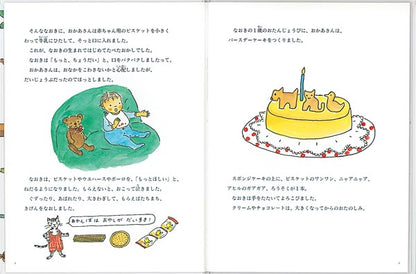 そんななおきに、おかあさんは赤ちゃん用のビスケットを小さく
わって牛乳にひたして、そっと口に入れました。
これが、なおきの生まれてはじめてたべたおかしでした。
なおきは「もっと、ちょうだい」と、口をパタパタしましたって、
おかあさんは、おなかをこわさないかと心配しましたが、
だいじょうぶだったのでほっとしました。
なおきは、ビスケットやウエハースやボーロを、「もっとほしい」と、
ねだるようになりました。もらえないと、おこって泣きました。
ぐずったり、あばれたり、大さわぎして、もらえばたちまち、
きげんをなおしました。
おやしろずは おやしが だいすき!
なおきの1歳のおたんじょうびに、おかあさんは、
バースデーケーキをつくりました。
スポンジケーキの上に、ビスケットのワンワン、ニャアニャア、
アヒルのガアガア、ろうそくが1本。
なおきは手をたたいてよろこびました。
クリームやチョコレートは、大きくなってからのおたのしみ。